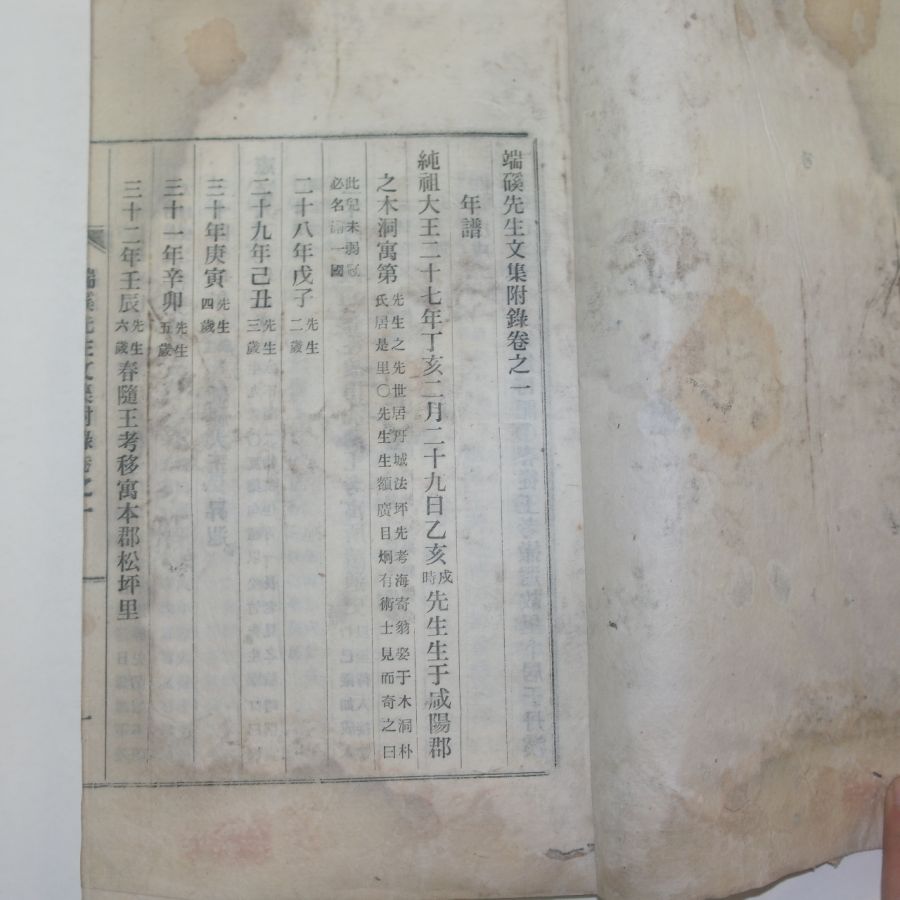 端磎先生文集附錄卷之一
年譜
純祖大王二十七年丁亥二月二十九日乙亥戌時先生生于咸陽郡
之木洞寓第先生之先世居丹城法坪先考海寄翁娶于木洞朴
氏居是里〇先生生額廣目炯有術士見而奇之曰
此兒未弱冠
必名 一國
二十八年戊子先生二歲
二十九年己丑先生三歲
三十年庚寅先生四歲
三十一年辛卯先生五歲
三十二年壬辰先生六歲春隨王考移寓本郡松坪里
端磎先生文集附錄卷之一
一